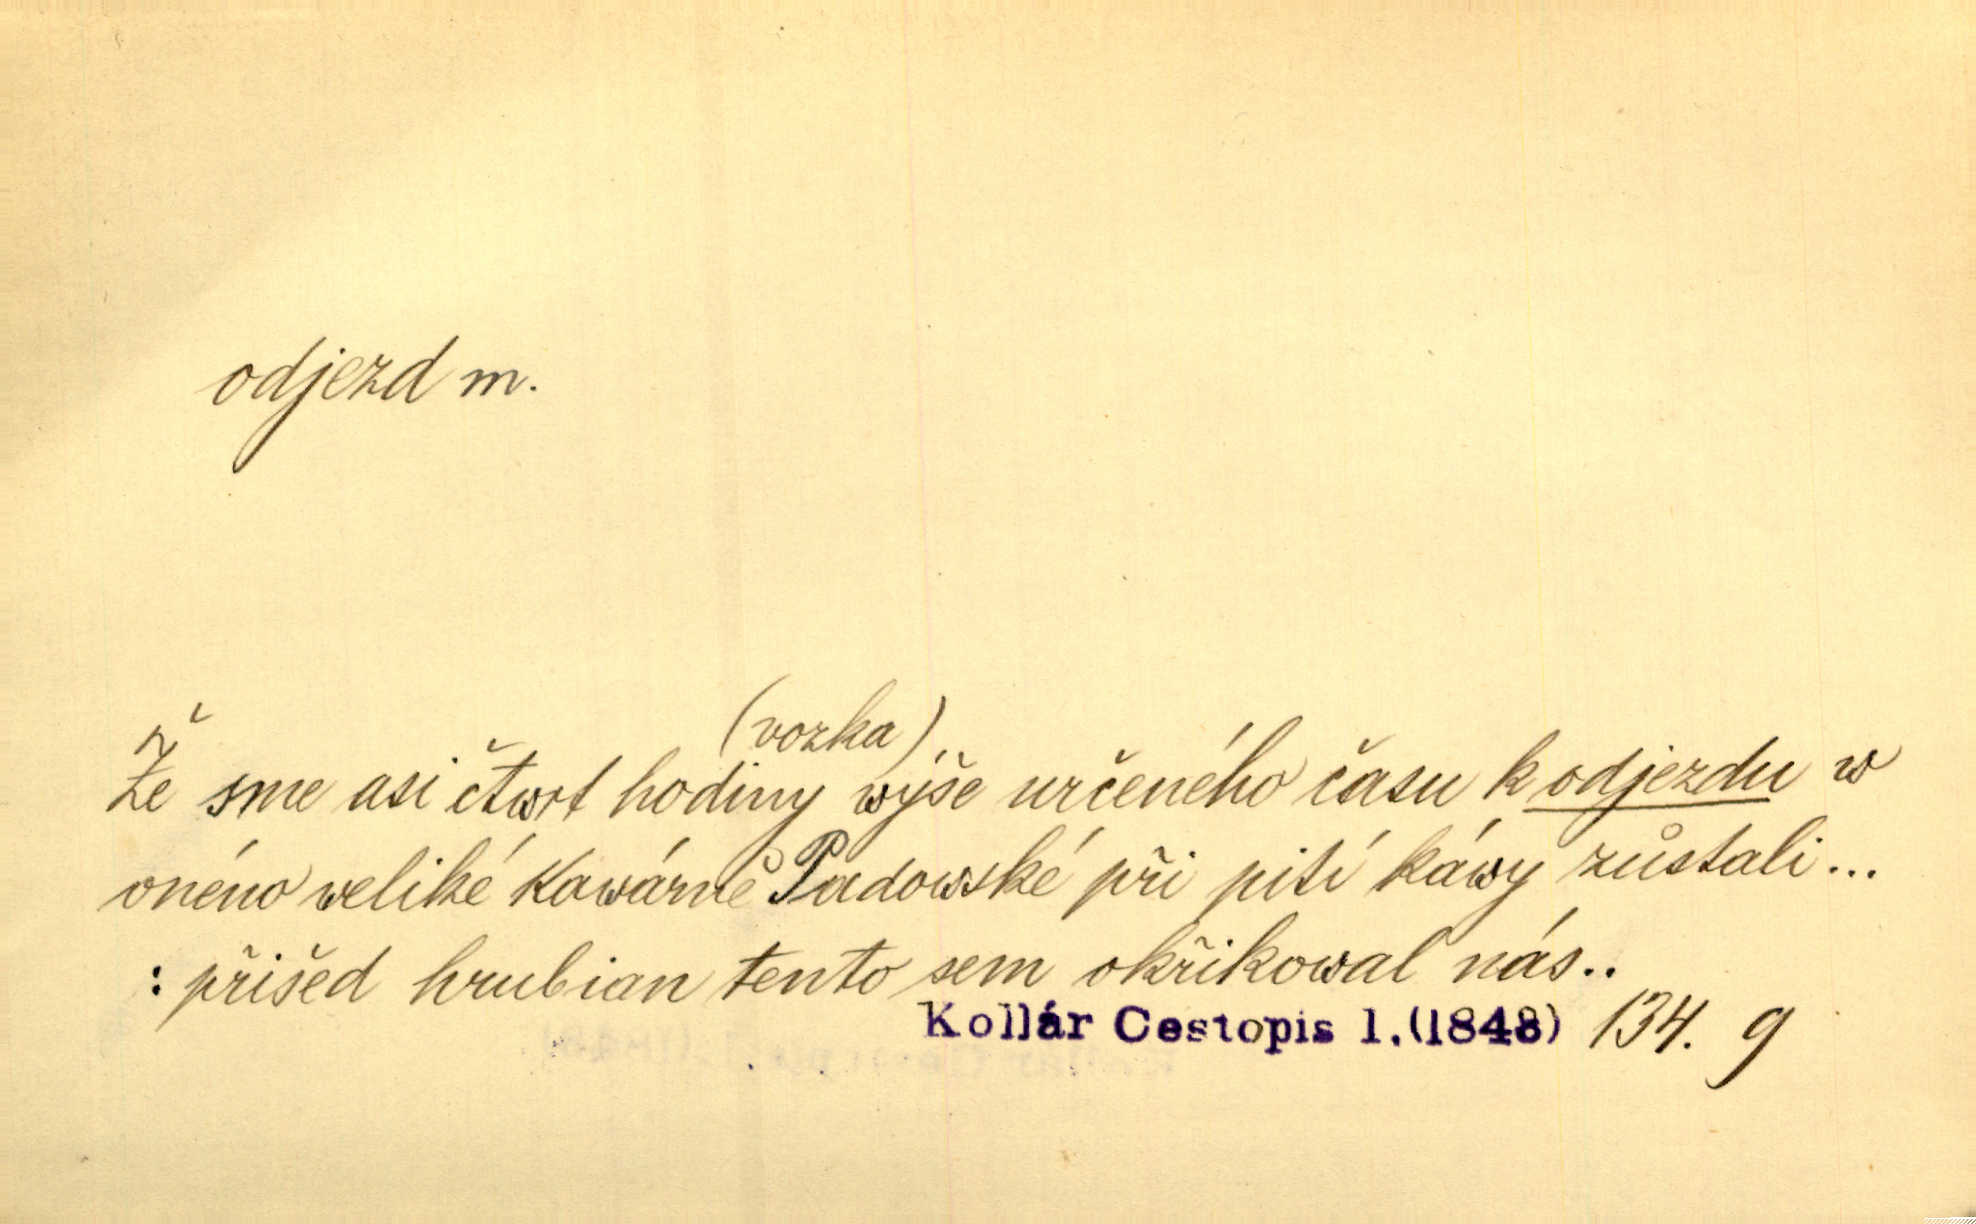 odjezd m.
(vozka)
Že sme asi čtwrt hodiny wýše určeného času k odjezdu w
onéno weliké Kawárně Padowské při pití káwy zůstali...
: přišed hrubian tento sem okřikowal nás..
Kollár Cestopis 1.(1848) 134. 9